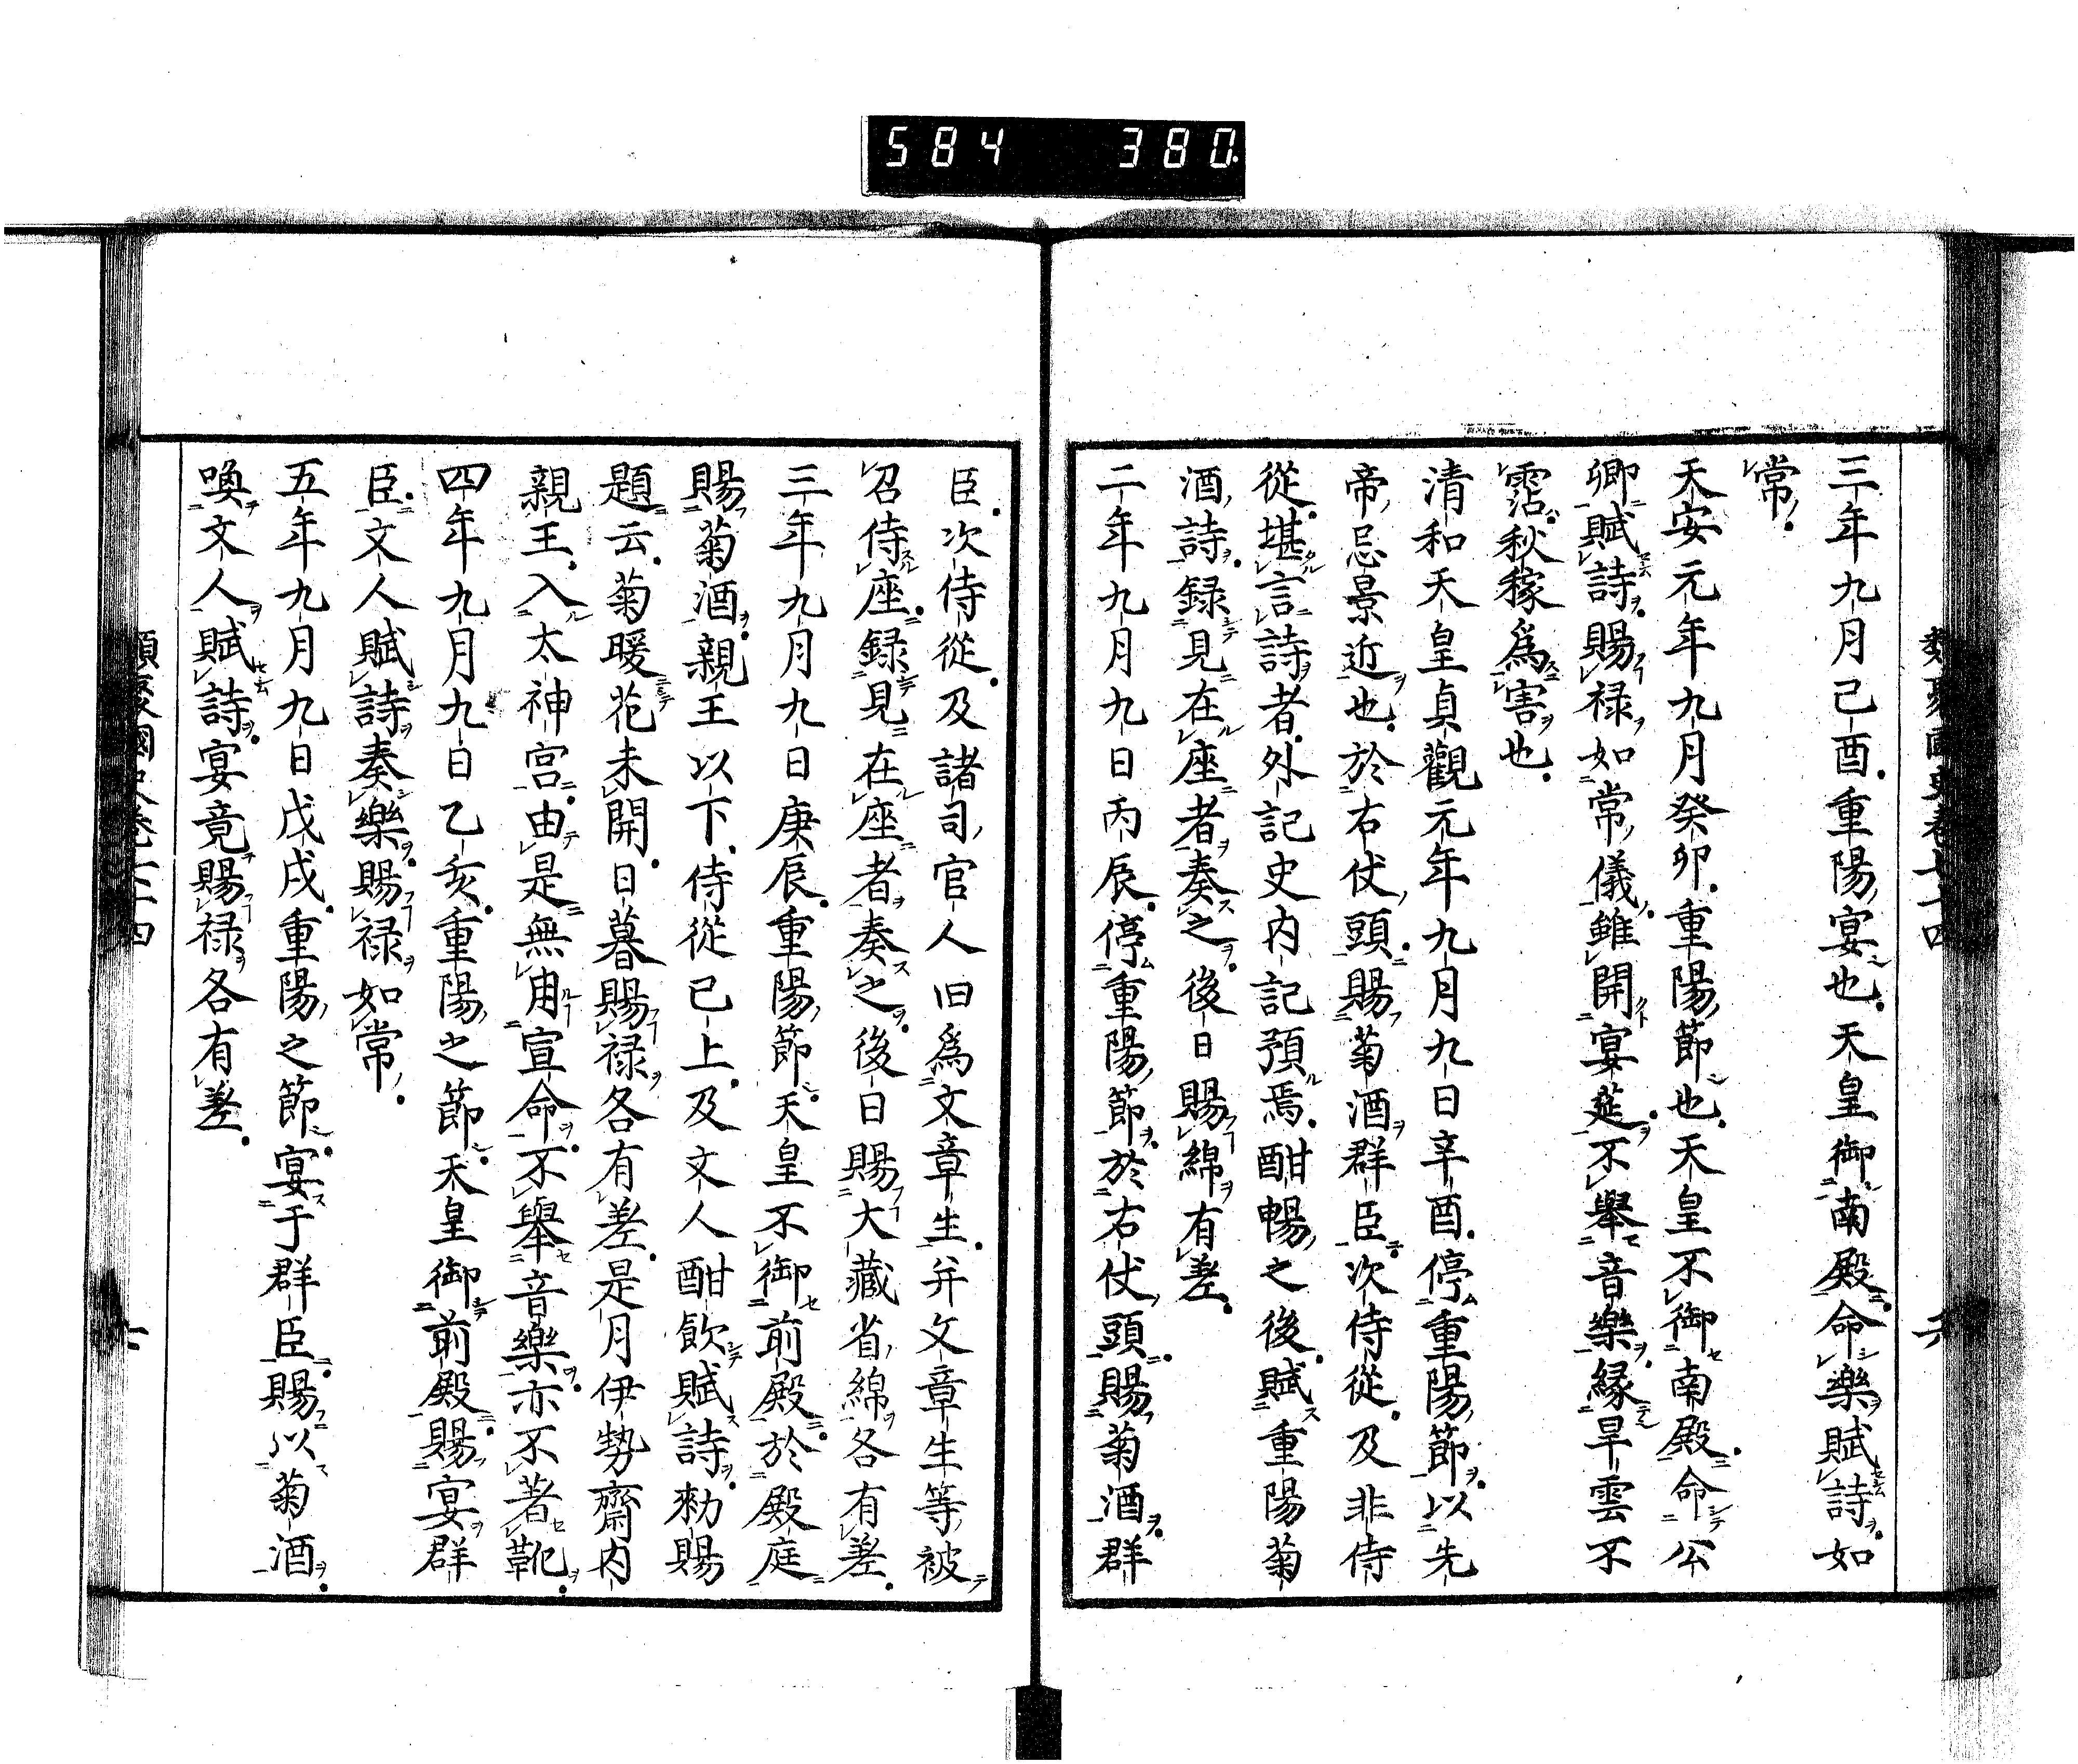 584 380
三年九月己酉重陽宴也天皇御南殿命樂賦詩如
常
天安元年九月癸卯重陽節也天皇不御南殿命公
卿賦詩賜禄如常儀雖開宴莚不擧音樂縁旱雲不
霑秋稼爲害也
清和天皇貞觀元年九月九日辛酉停重陽節以先
帝忌景近也於右仗頭賜菊酒群臣次侍從及非侍
從堪言詩者外記史内記預焉酣暢之後賦重陽菊
酒詩録見在座者奏之後日賜綿有差
二年九月九日丙辰停重陽節於右仗頭賜菊酒群
臣次侍從及諸司官人旧爲文章生并文章生等被
召侍座録見在座者奏之後日賜大藏省綿各有差
三年九月九日庚辰重陽節天皇不御前殿於殿庭
賜菊酒親王以下侍從已上及文人酣飲賦詩勅賜
題云菊暖花未開日暮賜禄各有差是月伊勢齋内
親王入太神宮由是無用宣命不擧音樂亦不著靴
四年九月九日乙亥重陽之節天皇御前殿賜宴群
臣文人賦詩奏樂賜禄如常
五年九月九日戊戌重陽之節宴于群臣賜以菊酒
喚文人賦詩宴竟賜禄各有差